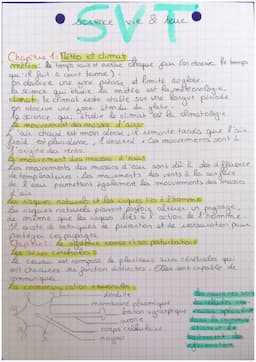 SVT
science vie & terre
Chapitre 1: Météo et climat
météo: le temps varie et évolue chaque jour (on observe le temps
qu'il fait à court terme).
On observe une zone précise et limitée du globe.
La science qui étudie la météo est la météorologie.
Climat: le climat reste stable sur une longue période
on observe une zone étendue du globe.
La science qui étudie le climat est la climatologie
le mouvement des masses d'air
L'air chaud est moins dense, il remonte tandis que l'air
froid est plus dense, il descend. Ces mouvements sont à
l'origine des vents.
le mouvement des masses d'eau
Les mouvements des masses d'eau sont dû à des différences
de températures. Les mouvements des vents à la surface
de l'eau permettent également les mouvements des masses
d'eau.
Les risques naturels et les risques liés à l'homme
Les risques naturels peuvent parfois altérer un paysage,
de même que les risques liés à l'action de l'homme.
Il existe des techniques de prévention et de restauration pour
protéger les paysages.
Chapitre 2: le système nerveux et ses perturbations
Les aires cérébrales
Le cerveau est composé de plusieurs aires cérébrales qui
ont chacunes des fonctions distinctes. Elles sont capables de
communiquer.
La communication neuronale
dendrite
membrane plasmique
bouton synaptique
axone
corps cellulaire
noyau